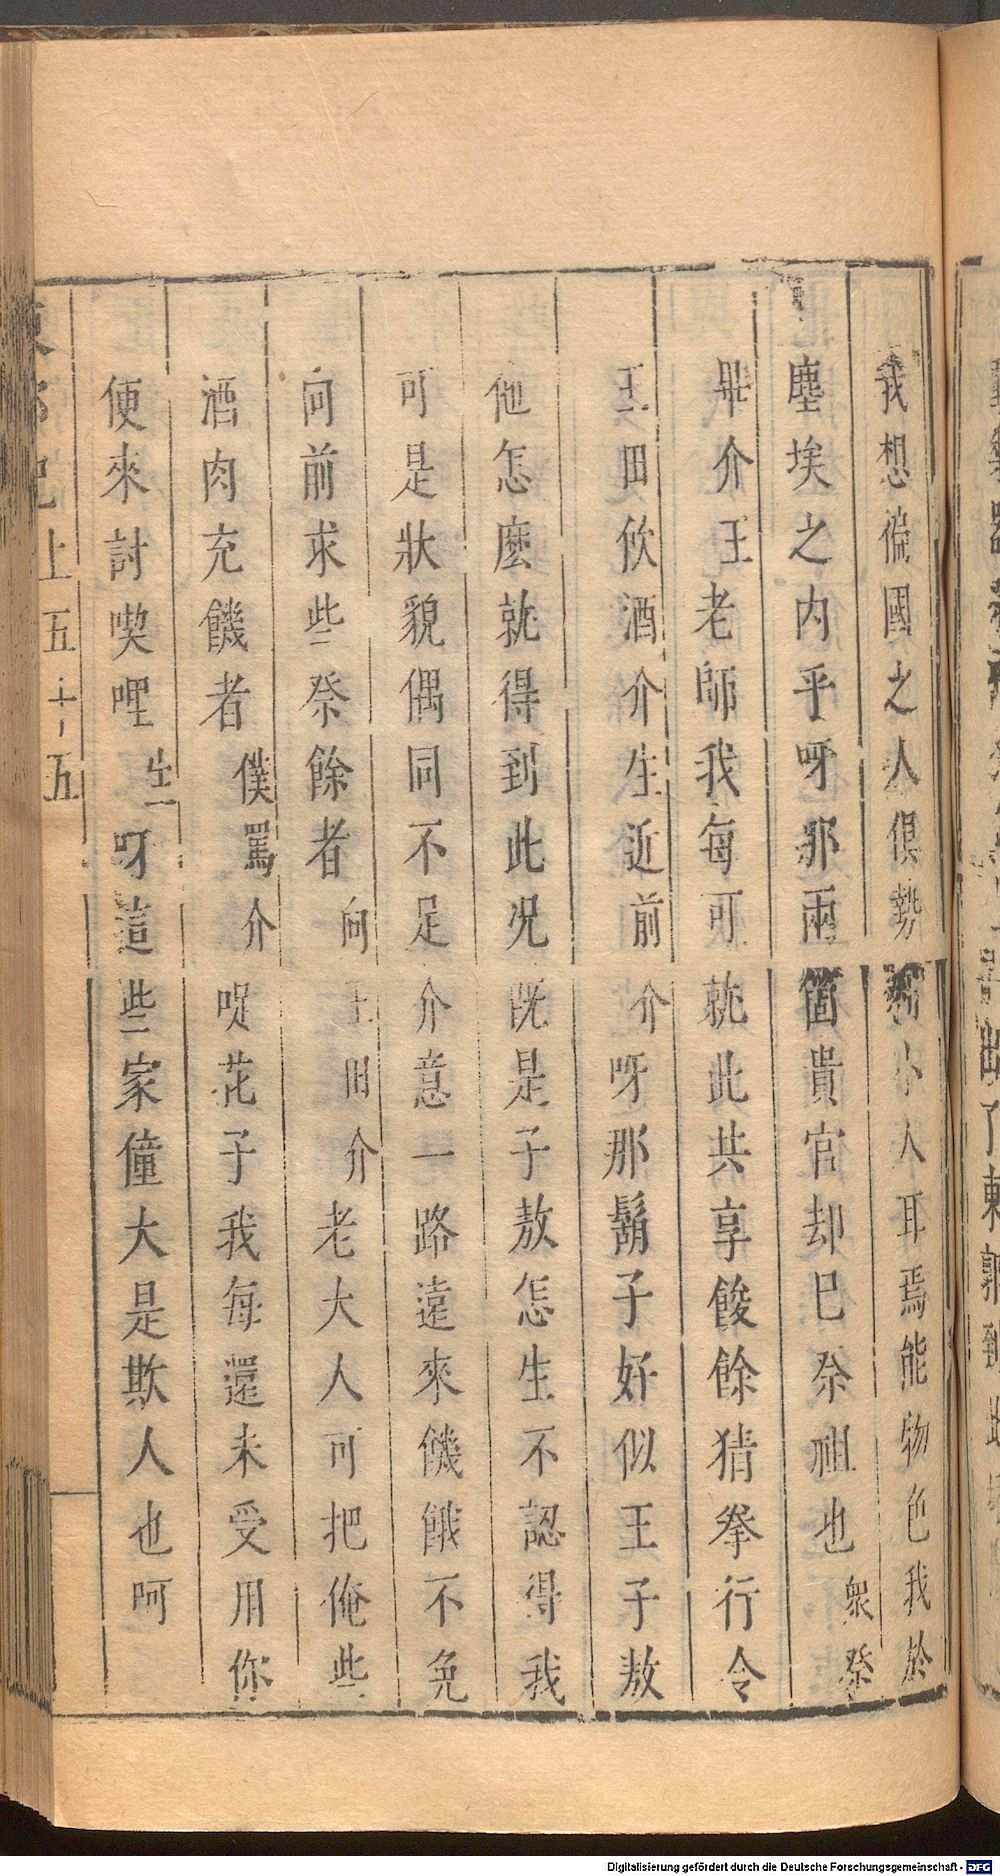 我想徧國之人俱勢利小人耳焉能物色我於
塵埃之內乎呀那兩箇貴官却已祭祖也衆祭
畢介王老師我每可就此共享餕餘猜拳行令
王田飲酒介生近前介呀那鬍子好似王子敖
他怎麽就得到此况既是子敖怎生不認得我
可是狀貌偶同不足介意一路遠來饑餓不免
向前求些祭餘者向王田介老大人可把俺些
酒肉充饑者僕罵介哫花子我每還未受用你
便來討喫哩生呀這些家僮大是欺人也呵
東郭記上五十五
Digitalisierung gefördert durch die Deutsche Forschungsgemeinschaft - DFG